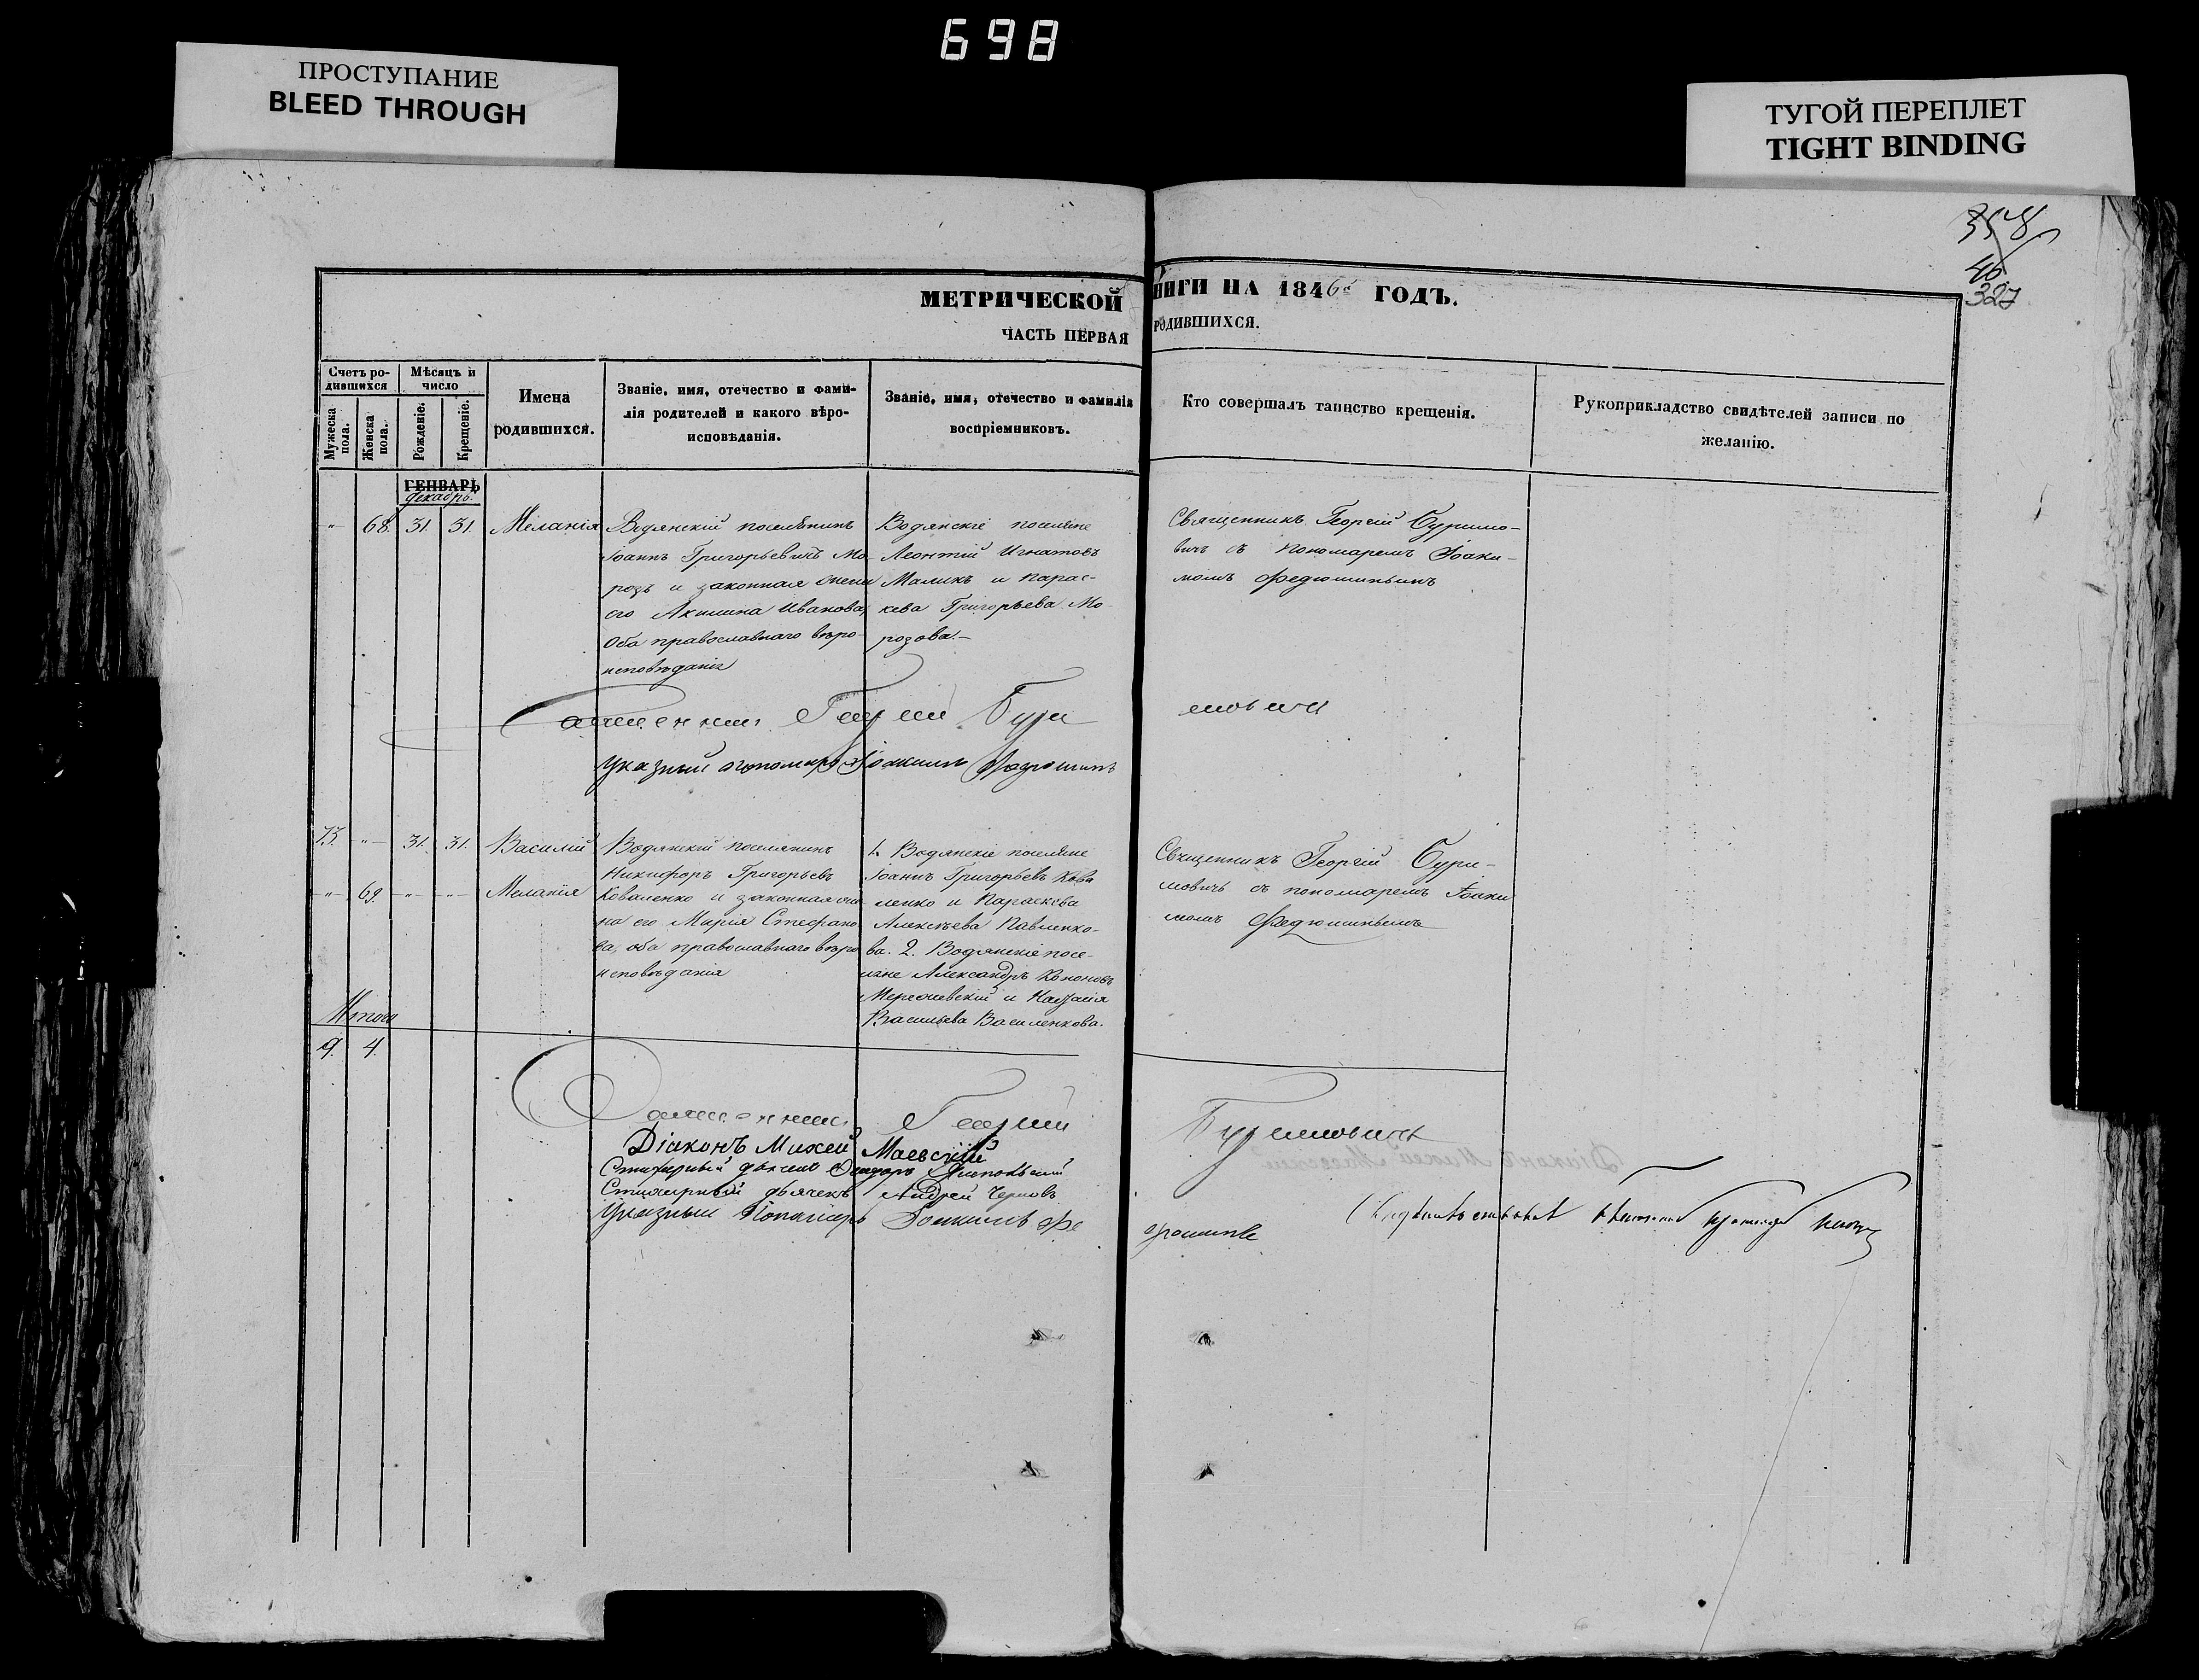 698
ПРОСТУПАНИЕ
BLEED THROUGH
ТУГОЙ ПЕРЕПЛЕТ
TIGHT BINDING
358
46
327
МЕТРИЧЕСКОЙ
НИГИ НА 1846 ГОДЪ.
ЧАСТЬ ПЕРВАЯ
РОДИВШИХСЯ.
Счетъ ро-
дившихся
Мѣсяцъ и
число
Мужеска
пола.
Женска
пола.
Рожденіе.
Крещеніе.
Имена
родившихся.
Званіе, имя, отечество и фами-
лія родителей и какого вѣро-
исповѣданія.
Званіе, имя, отечество и фамилія
воспріемниковъ.
Кто совершалъ таинство крещенія.
Рукоприкладство свидѣтелей записи по
желанію.
ГЕНВАРЬ
декабрь.
„ 68. 31. 31. Меланія
Водянскій поселянинъ
Іоаннъ Григорьевичъ Мо-
розъ и законная жена
его Акилина Иванова,
Оба православнаго вѣро-
исповѣданія
Водянскіе поселяне
Леонтій Игнатовъ
Маликъ и Парас-
кева Григорьева Мо-
розова.—
Священникъ Георгій Буримо-
вичъ съ пономаремъ Іоаки-
момъ Федюшинымъ
Священникъ Георгій Бури
мовичъ
Указный пономарь Іоакимъ Федюшинъ
73. „ 31. 31. Василій
„ 69. „ „ Меланія
Водянскій поселянинъ
Никифоръ Григорьевъ
Коваленко и законная же
на его Марія Стефано
ва, оба православнаго вѣро
исповѣданія
1. Водянскіе поселяне
Іоаннъ Григорьевъ Кова
ленко и Параскева
Алексѣева Павленко-
ва. 2. Водянскіе посе-
ляне Александръ Кононовъ
и
Васильева Василенкова.
Священникъ Георгій Бури-
мовичъ съ пономаремъ Іоаки
момъ Федюшинымъ
Итого
9. 4.
Священникъ Георгій
Буримовичъ
Діаконъ Михей Маевскій
Стихарный дьячекъ
Стихарный дьячекъ Андрей Черновъ
Указный Пономарь Іоакимъ Фе
дюшинъ